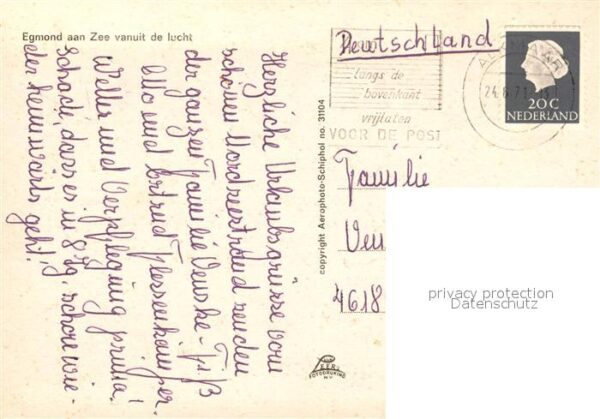 Egmond aan Zee vanuit de lucht
Herzliche Urlaubsgrüsse vom
schönen Nordseestrand senden
der ganzen Familie
Otto und
Wetter und Verpflegung prima!
Schade, dass es in 8 Tg. schon wie-
der heimwärts geht!
copyright Aerophoto-Schiphol no. 31104
langs de
bovenkant
vrijlaten
VOOR DE POST
24.6.71
20C
NEDERLAND
Deutschland
Familie
4618
privacy protection
Datenschutz